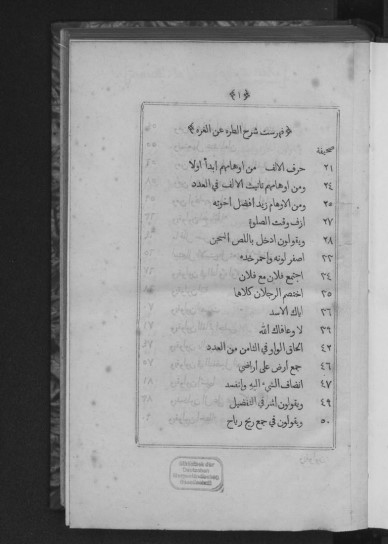 ﴿١﴾
﴿ فهرست شرح الطره عن الغره ﴾
صحيفة
٢١ حرف الالف من اوهامهم ابدأ اولا
٢٤ ومن اوهامهم تانيث الالف في العدد
٢٥ ومن الاوهام زيد افضل اخوته
٢٧ ازف وقت الصلوة
٢٨ ويقولون ادخل باللص السجن
٣٣ اصفر لونه واحمر خده
٣٤ اجتمع فلان مع فلان
٣٥ اختصم الرجلان كلاهما
٣٦ اياك الاسد
٣٩ لا وعافاك الله
٤٢ الحاق الواو في الثامن من العدد
٤٦ جمع ارض على اراضي
٤٧ انضاف الشيء اليه وانفسد
٤٩ ويقولون اشر في التفضيل
٥٠ ويقولون في جمع ريح رياح
Bibliothek der
Deutschen
Morgenländischen
Gesellschaft